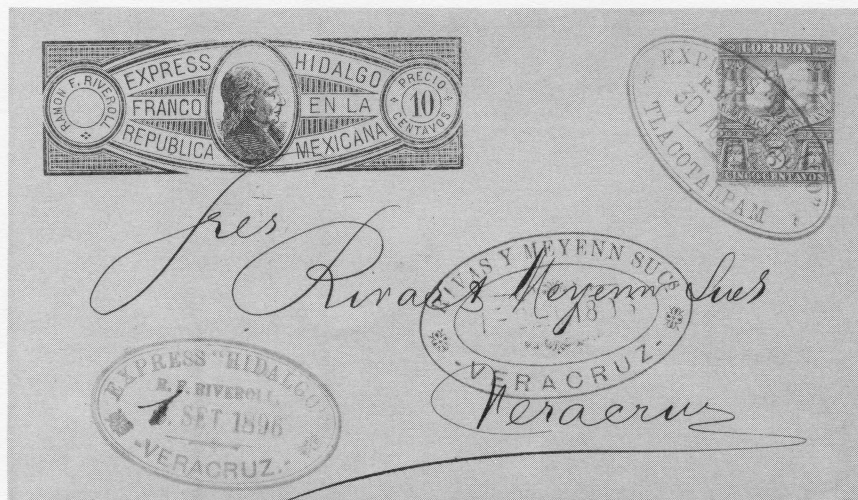 RAMON F. RIVEROLL
EXPRESS HIDALGO
FRANCO EN LA
REPUBLICA MEXICANA
PRECIO
10
CENTAVOS
CORREOS
CINCO CENTAVOS
EXPRESS "HIDALGO"
30
TLACOTALPAM
Sres
Rivas y Meyenn Sucs
Veracruz
RIVAS Y MEYENN SUCS
VERACRUZ.-
EXPRESS "HIDALGO"
R. F. RIVEROLL,
1 SET 1896
-VERACRUZ.-